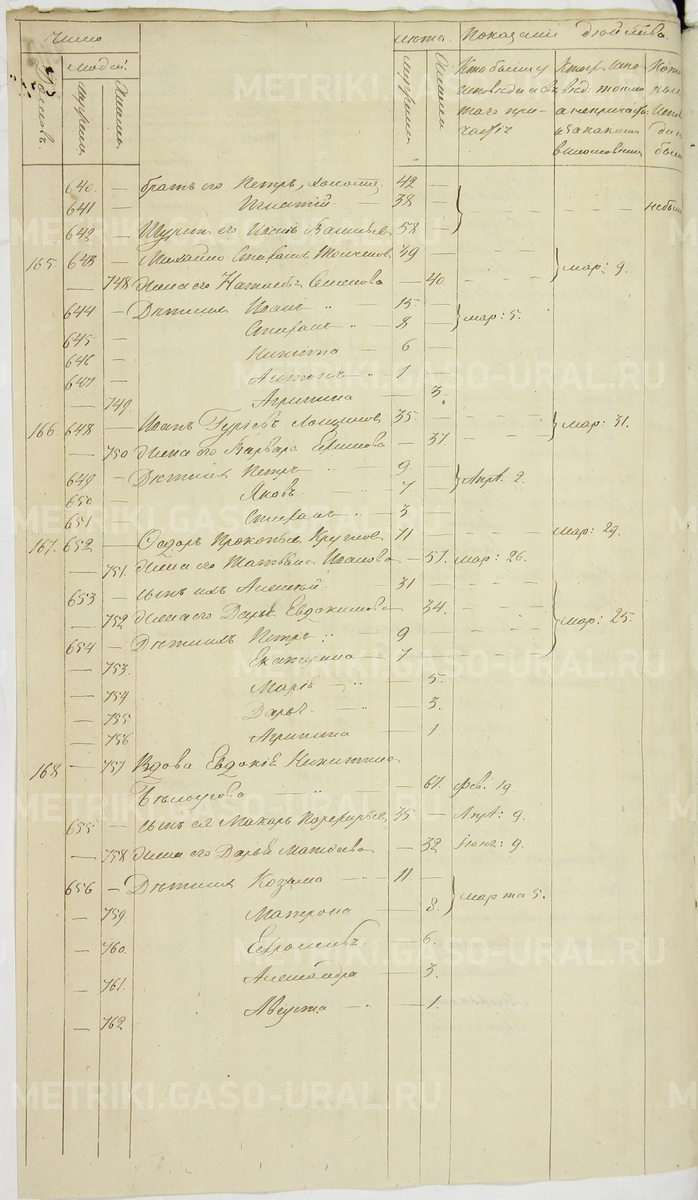 Число
лѣта
Показаніе дѣйства
Домовъ
людей
мужеска
женска
мужеска
женска
640 — братъ его Петръ, холостъ, 42 —
641 — Игнатій — 38 — небылъ
642 — Шуринъ его Иванъ Васильевъ 58 —
165 643 — Михайло Стефановъ 49 — мар: 9.
— 748 Жена его Наталья Семенова — 40.
644 — Дѣти ихъ Иванъ — 15 —
645 — Стефанъ — 8 — мар: 5.
646 — Никита — 6 —
647 — Антонъ — 1 —
— 749. Агрипина — 3.
166 648 — Иванъ Гурьевъ 35. — мар: 31.
— 750 Жена его Варвара — 37
649 — Дѣти ихъ Петръ — 9 —
650 — Яковъ — 7 — Апр. 2.
651 — Стефанъ — 3 —
167. 652 — Ѳедоръ Прокопьевъ Кругловъ 71 — мар: 29.
— 751. Жена его Татьяна Иванова — 57. мар: 26.
653 — сынъ ихъ Алексѣй 31 —
— 752 Жена его Дарья Евдокимова — 34. мар: 25.
654 — Дѣти ихъ Петръ — 9 —
— 753. Екатерина — 7
— 754 Марія — 5.
— 755 Дарья — 3.
— 756 Агрипина — 1
168 — 757 Вдова Евдокія Никитина
Бѣлоусова — 67. Фев. 19
655 — сынъ ея Макаръ Порфирьевъ 35 — Апр: 9.
— 758 Жена его Дарья Матвѣева — 32 9.
656 — Дѣти ихъ Козьма — 11 —
— 759. Матрона — 8. марта 5.
— 760. — 6.
— 761. Александра — 3.
— 762 Августа — 1.
METRIKI.GASO-URAL.RU
METRIKI.GASO-URAL.RU
METRIKI.GASO-URAL.RU
METRIKI.GASO-URAL.RU
METRIKI.GASO-URAL.RU